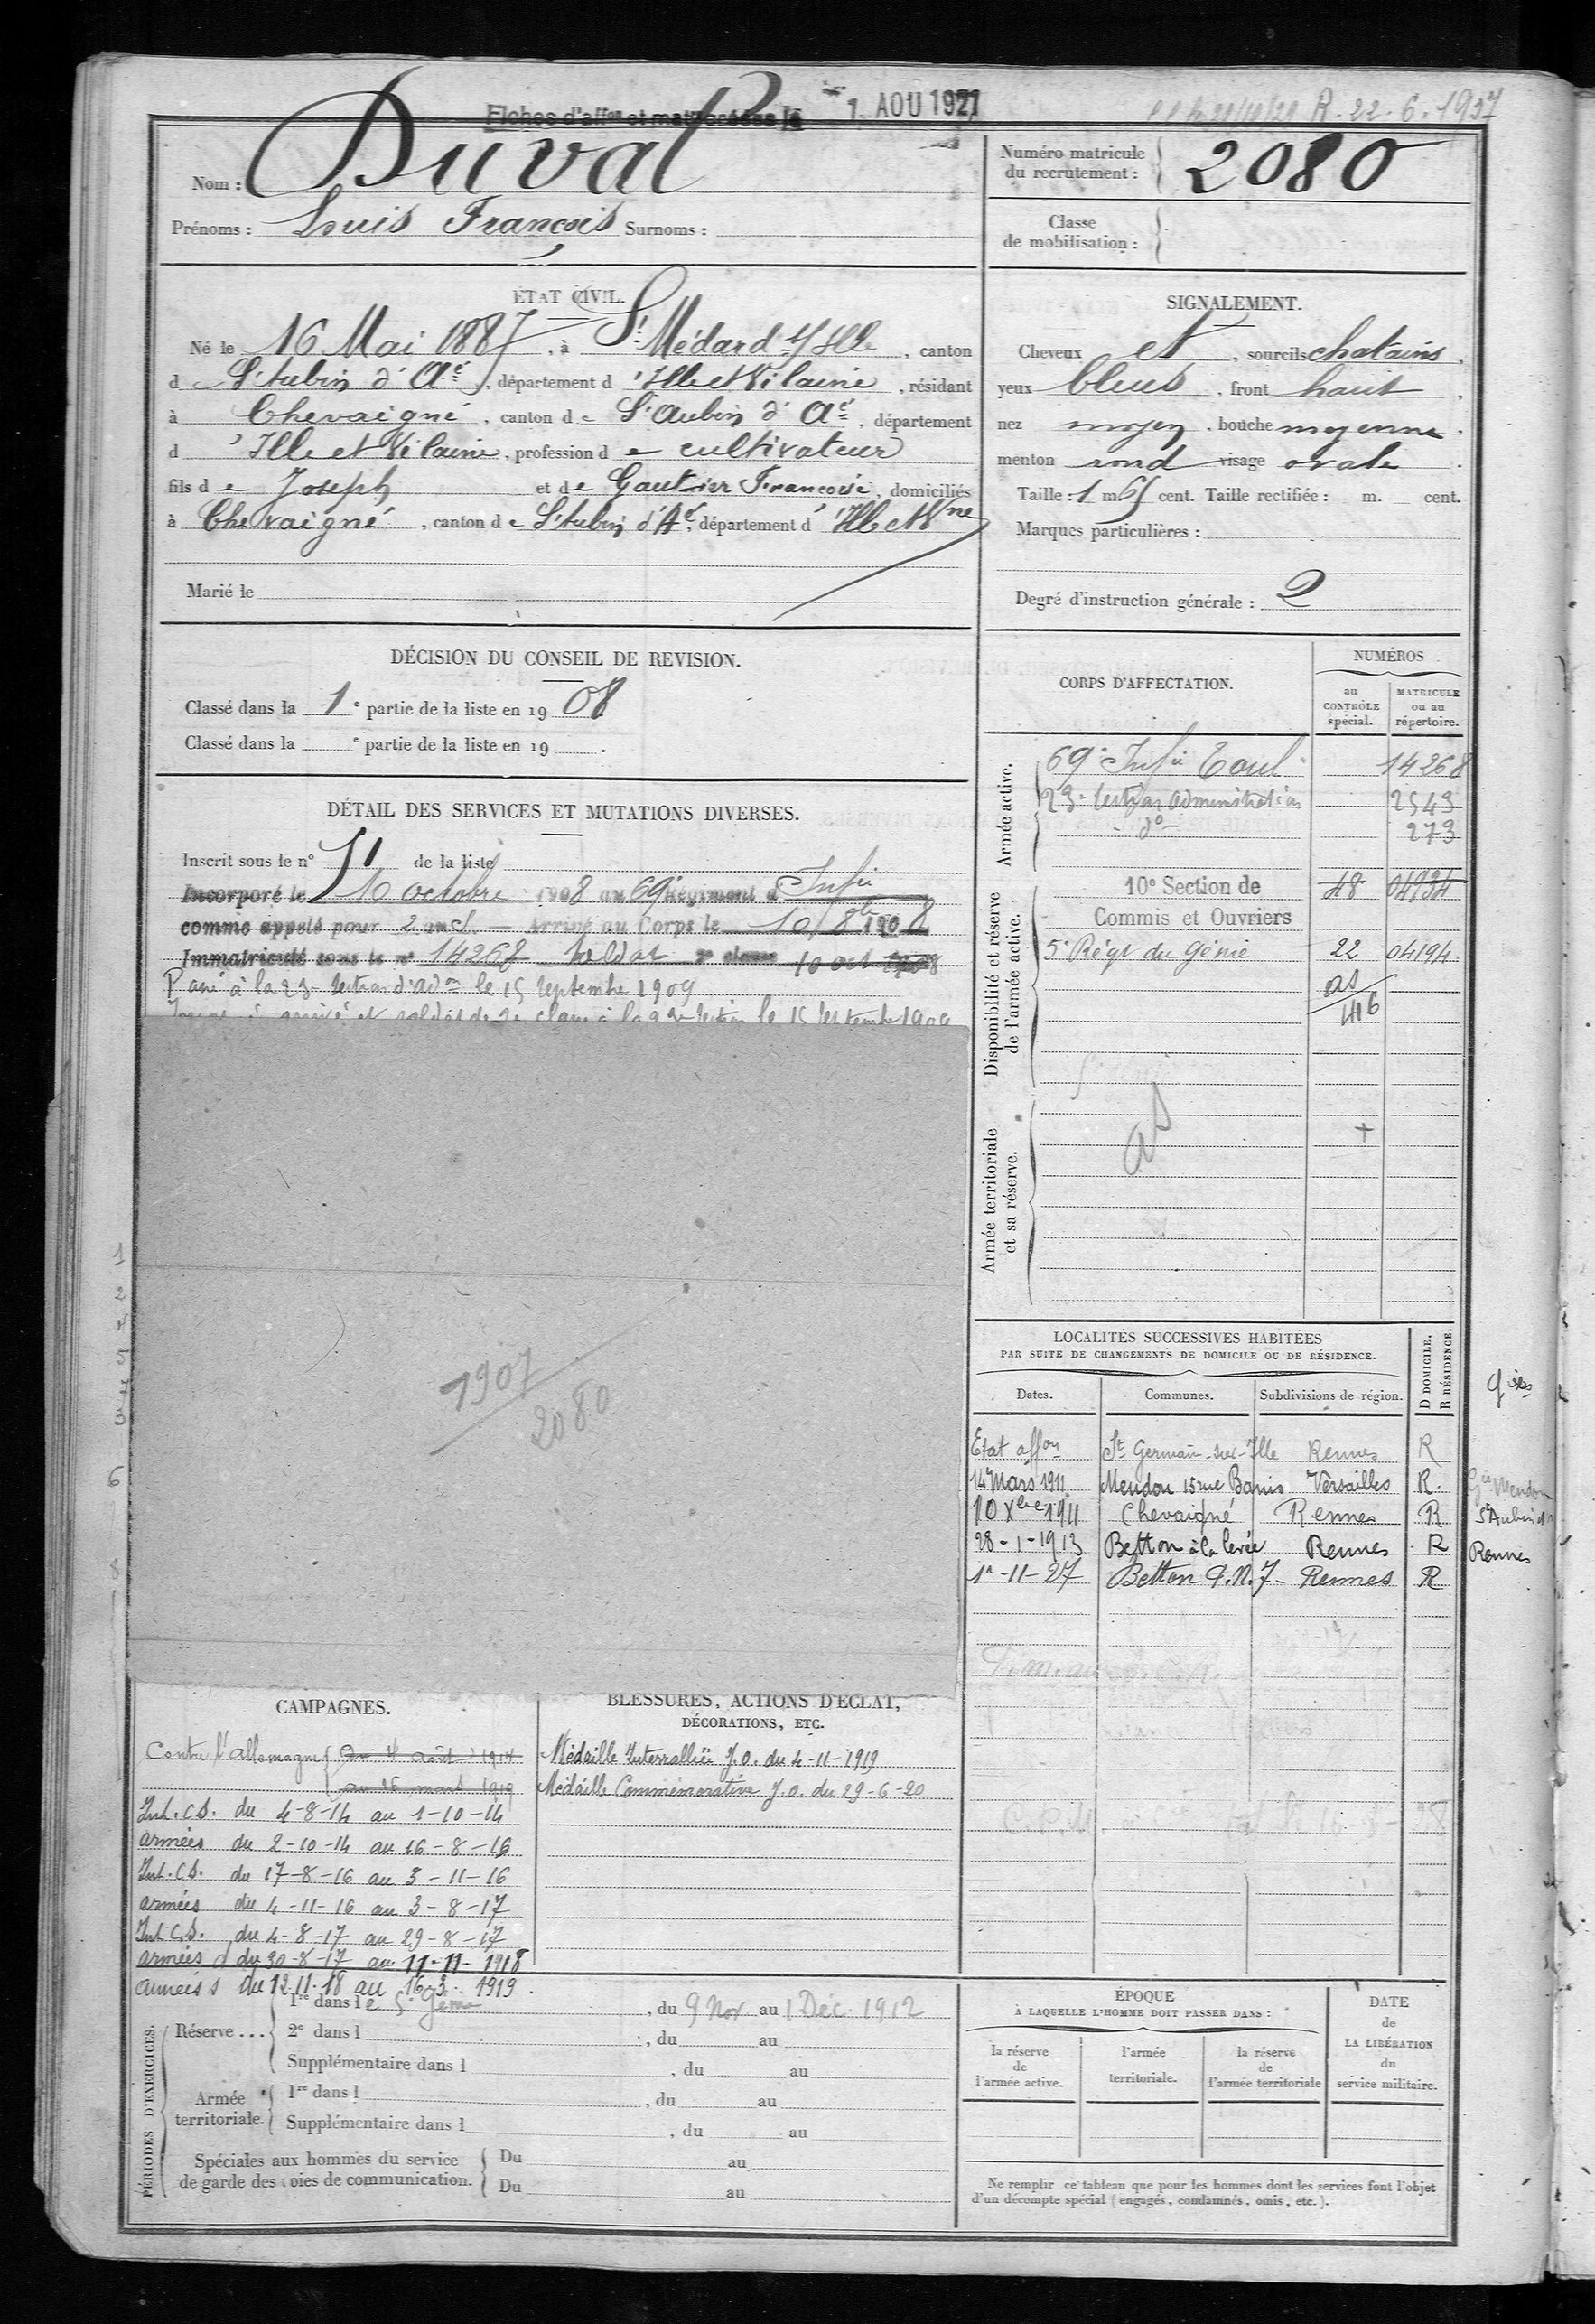 Fiches d'affon et mat créées le 1 AOU 1927
R. 22. 6. 1937
Nom : Duval
Prénoms : Louis François Surnoms :
Numéro matricule
du recrutement : 2080
Classe
de mobilisation :
ÉTAT CIVIL.
Né le 16 Mai 1887, à St Médard s/ Ille, canton
d St Aubin d'Aé, département d 'Ille et Vilaine, résidant
à Chevaigné, canton de St Aubin d'Aé, département
d 'Ille et Vilaine, profession de cultivateur
fils de Joseph et de Gautier Françoise, domiciliés
à Chevaigné, canton de St Aubin d'Aé, département d'Ille et Vne
Marié le
SIGNALEMENT.
Cheveux et, sourcils chatains,
yeux bleus, front haut,
nez moyen, bouche moyenne,
menton rond visage ovale.
Taille : 1 m 65 cent. Taille rectifiée : m. cent.
Marques particulières :
Degré d'instruction générale : 2
DÉCISION DU CONSEIL DE REVISION.
Classé dans la 1e partie de la liste en 1908
Classé dans la e partie de la liste en 19 .
DÉTAIL DES SERVICES ET MUTATIONS DIVERSES.
Inscrit sous le n° 51 de la liste
Incorporé le 10 octobre 1908 au 69e Régiment d'Infie
comme appelé pour 2 ans. — Arrivé au Corps le 10 8bre 1908
Immatriculé sous le n° 14268 soldat 2e classe 10 oct 1908
Passé à la 23e Section d'adon le 15 Septembre 1909
arrivé et soldat de 2e classe à la 23e Section le 15 Septembre 1909
1907
2080
CORPS D'AFFECTATION.
NUMÉROS
au
CONTRÔLE
spécial.
MATRICULE
ou au
répertoire.
Armée active.
69e Infie Toul 14268
23e Section administration 2543
- do - 273
Disponibilité et réserve
de l'armée active.
10e Section de 48 04934
Commis et Ouvriers
5e Régt du Génie 22 04194
as
46
Armée territoriale
et sa réserve.
as
LOCALITÉS SUCCESSIVES HABITÉES
PAR SUITE DE CHANGEMENTS DE DOMICILE OU DE RÉSIDENCE.
Dates. Communes. Subdivisions de région. D DOMICILE. R RÉSIDENCE.
Etat affon St Germain-sur-Ille Rennes R
14 Mars 1911 Meudon 15 rue Rennes Versailles R. Gie Meudon
10 Xbre 1911 Chevaigné Rennes R St Aubin
28-1-1913 Betton à la levée Rennes R Rennes
1a-11-27 Betton P.N.7 - Rennes R
CAMPAGNES.
Contre l'allemagne du 4 août 1914
au 26 mars 1919
Int. C.S. du 4-8-14 au 1-10-14
armées du 2-10-14 au 16-8-16
Int. C.S. du 17-8-16 au 3-11-16
armées du 4-11-16 au 3-8-17
Int C.S. du 4-8-17 au 29-8-17
armées d du 30-8-17 au 11-11-1918
armées s du 12.11.18 au 16.3.1919.
BLESSURES, ACTIONS D'ÉCLAT,
DÉCORATIONS, ETC.
Médaille Interalliée J.O. du 4-11-1919
Médaille Commémorative J.O. du 29-6-20
PÉRIODES D'EXERCICES.
Réserve...
1re dans le 5e Génie, du 9 Nov au 1 Déc. 1912
2e dans l , du au
Supplémentaire dans l , du au
Armée
territoriale.
1re dans l , du au
Supplémentaire dans l , du au
Spéciales aux hommes du service
de garde des voies de communication.
Du au
Du au
ÉPOQUE
À LAQUELLE L'HOMME DOIT PASSER DANS :
la réserve
de
l'armée active.
l'armée
territoriale.
la réserve
de
l'armée territoriale
DATE
de
LA LIBÉRATION
du
service militaire.
Ne remplir ce tableau que pour les hommes dont les services font l'objet
d'un décompte spécial (engagés, condamnés, omis, etc.).